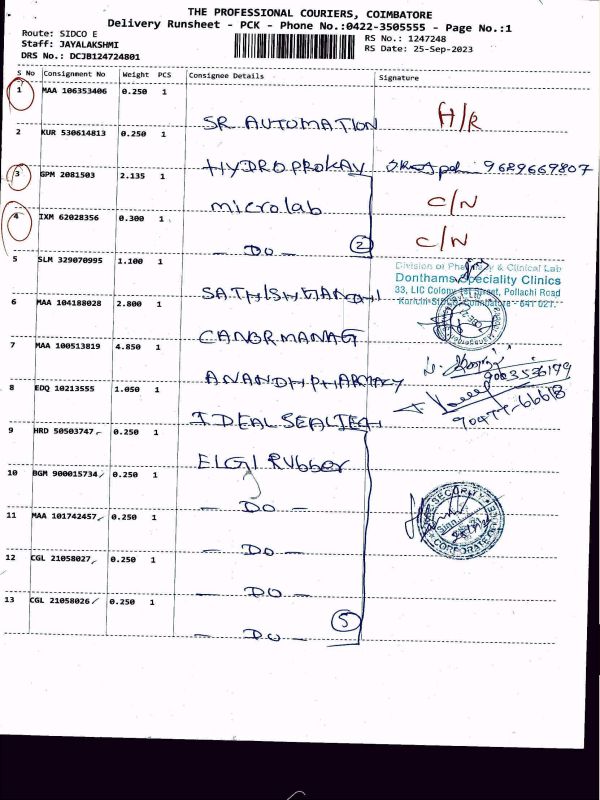 THE PROFESSIONAL COURIERS, COIMBATORE
Delivery Runsheet - PCK - Phone No.:0422-3505555 - Page No.:1
Route: SIDCO E RS No.: 1247248
Staff: JAYALAKSHMI RS Date: 25-Sep-2023
DRS No.: DCJB124724801
S No Consignment No Weight PCS Consignee Details Signature
1 MAA 106353406 0.250 1
SR AUTOMATION
2 KUR 530614813 0.250 1
HYDROPROKAV 9689669807
3 GPM 2081503 2.135 1
microlab C/N
4 IXM 62028356 0.300 1
- DO - 2 C/N
5 SLM 329070995 1.100 1
Division of Pharmacy & Clinical Lab
Donthams Speciality Clinics
33, LIC Colony 1st Street, Pollachi Road
SATHISHGANDHI
6 MAA 104188028 2.800 1
CANBR MANAG
7 MAA 100513819 4.850 1
ANANDH PHARMACY
8 EDQ 10213555 1.050 1
90477-66618
IDEAL SEAL
9 HRD 50503747 0.250 1
ELGI RUbber
10 BGM 900015734 0.250 1
- DO -
SECURITY
CORPORATE
11 MAA 101742457 0.250 1
- DO -
12 CGL 21058027 0.250 1
- DO -
13 CGL 21058026 0.250 1
- DO - 5